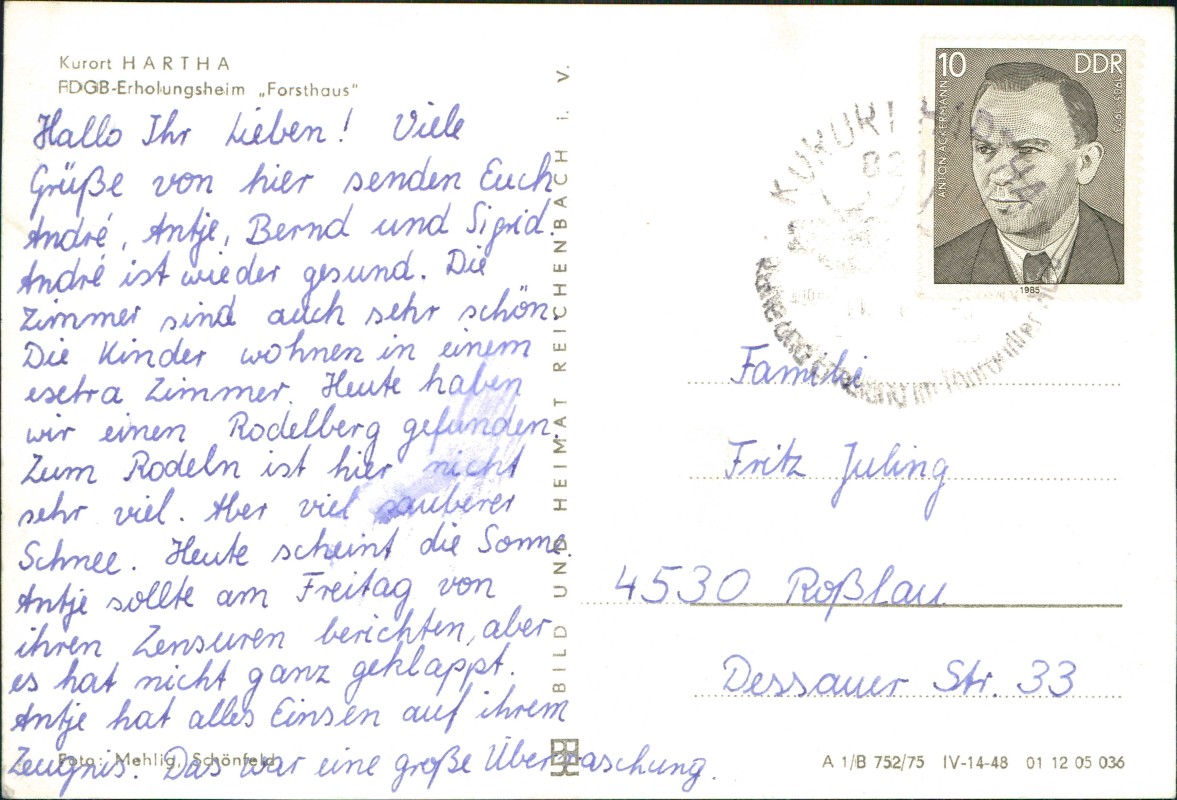 Kurort HARTHA
FDGB-Erholungsheim „Forsthaus"
Hallo Ihr Lieben! Viele
Grüße von hier senden Euch
André, Antje, Bernd und Sigrid.
André ist wieder gesund. Die
Zimmer sind auch sehr schön.
Die Kinder wohnen in einem
esetra Zimmer. Heute haben
wir einen Rodelberg gefunden.
Zum Rodeln ist hier nicht
sehr viel. Aber viel sauberer
Schnee. Heute scheint die Sonne.
Antje sollte am Freitag von
ihren Zensuren berichten, aber
es hat nicht ganz geklappt.
Antje hat alles Einsen auf ihrem
Zeugnis. Das war eine große Überraschung.
Foto: Mehlig, Schönfeld
BILD UND HEIMAT REICHENBACH i. V.
10 DDR
ANTON ACKERMANN
1905-1973
1985
KURORT HARTHA
821
Familie
Fritz Juling
4530 Roßlau
Dessauer Str. 33
A 1/B 752/75 IV-14-48 01 12 05 036